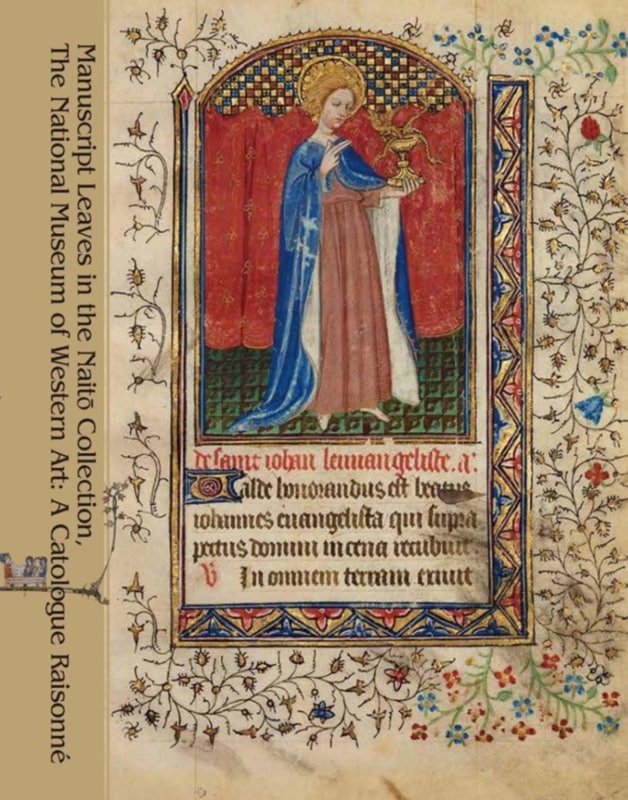 Manuscript Leaves in the Naitō Collection,
The National Museum of Western Art: A Catologue Raisonné
de saint iohan leuuangeliste. a.
Valde honorandus est beatus
iohannes euangelista qui supra
pectus domini in cena recubuit.
V In omnem terram exiuit